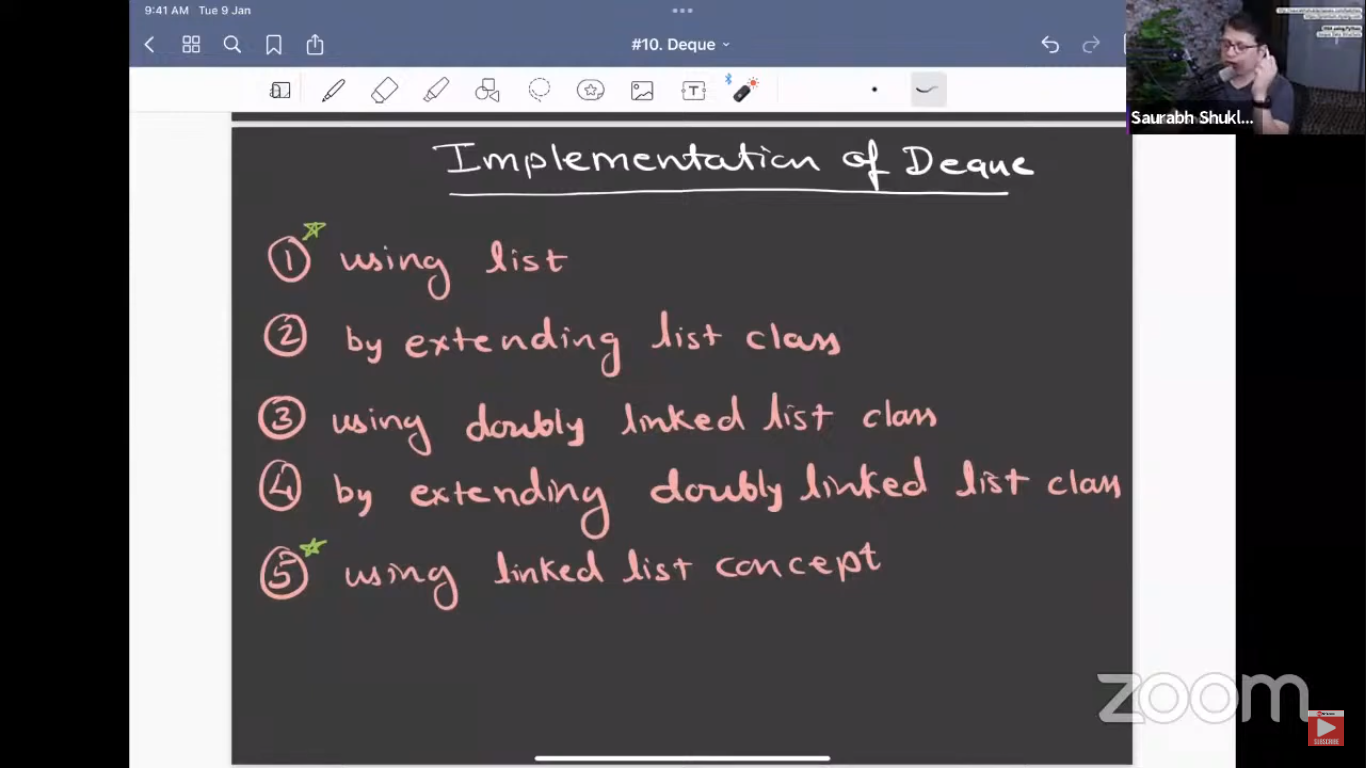 9:41 AM Tue 9 Jan
#10. Deque
Saurabh Shukl...
Implementation of Deque
① using list
② by extending list class
③ using doubly linked list class
④ by extending doubly linked list class
⑤ using linked list concept
zoom
SUBSCRIBE